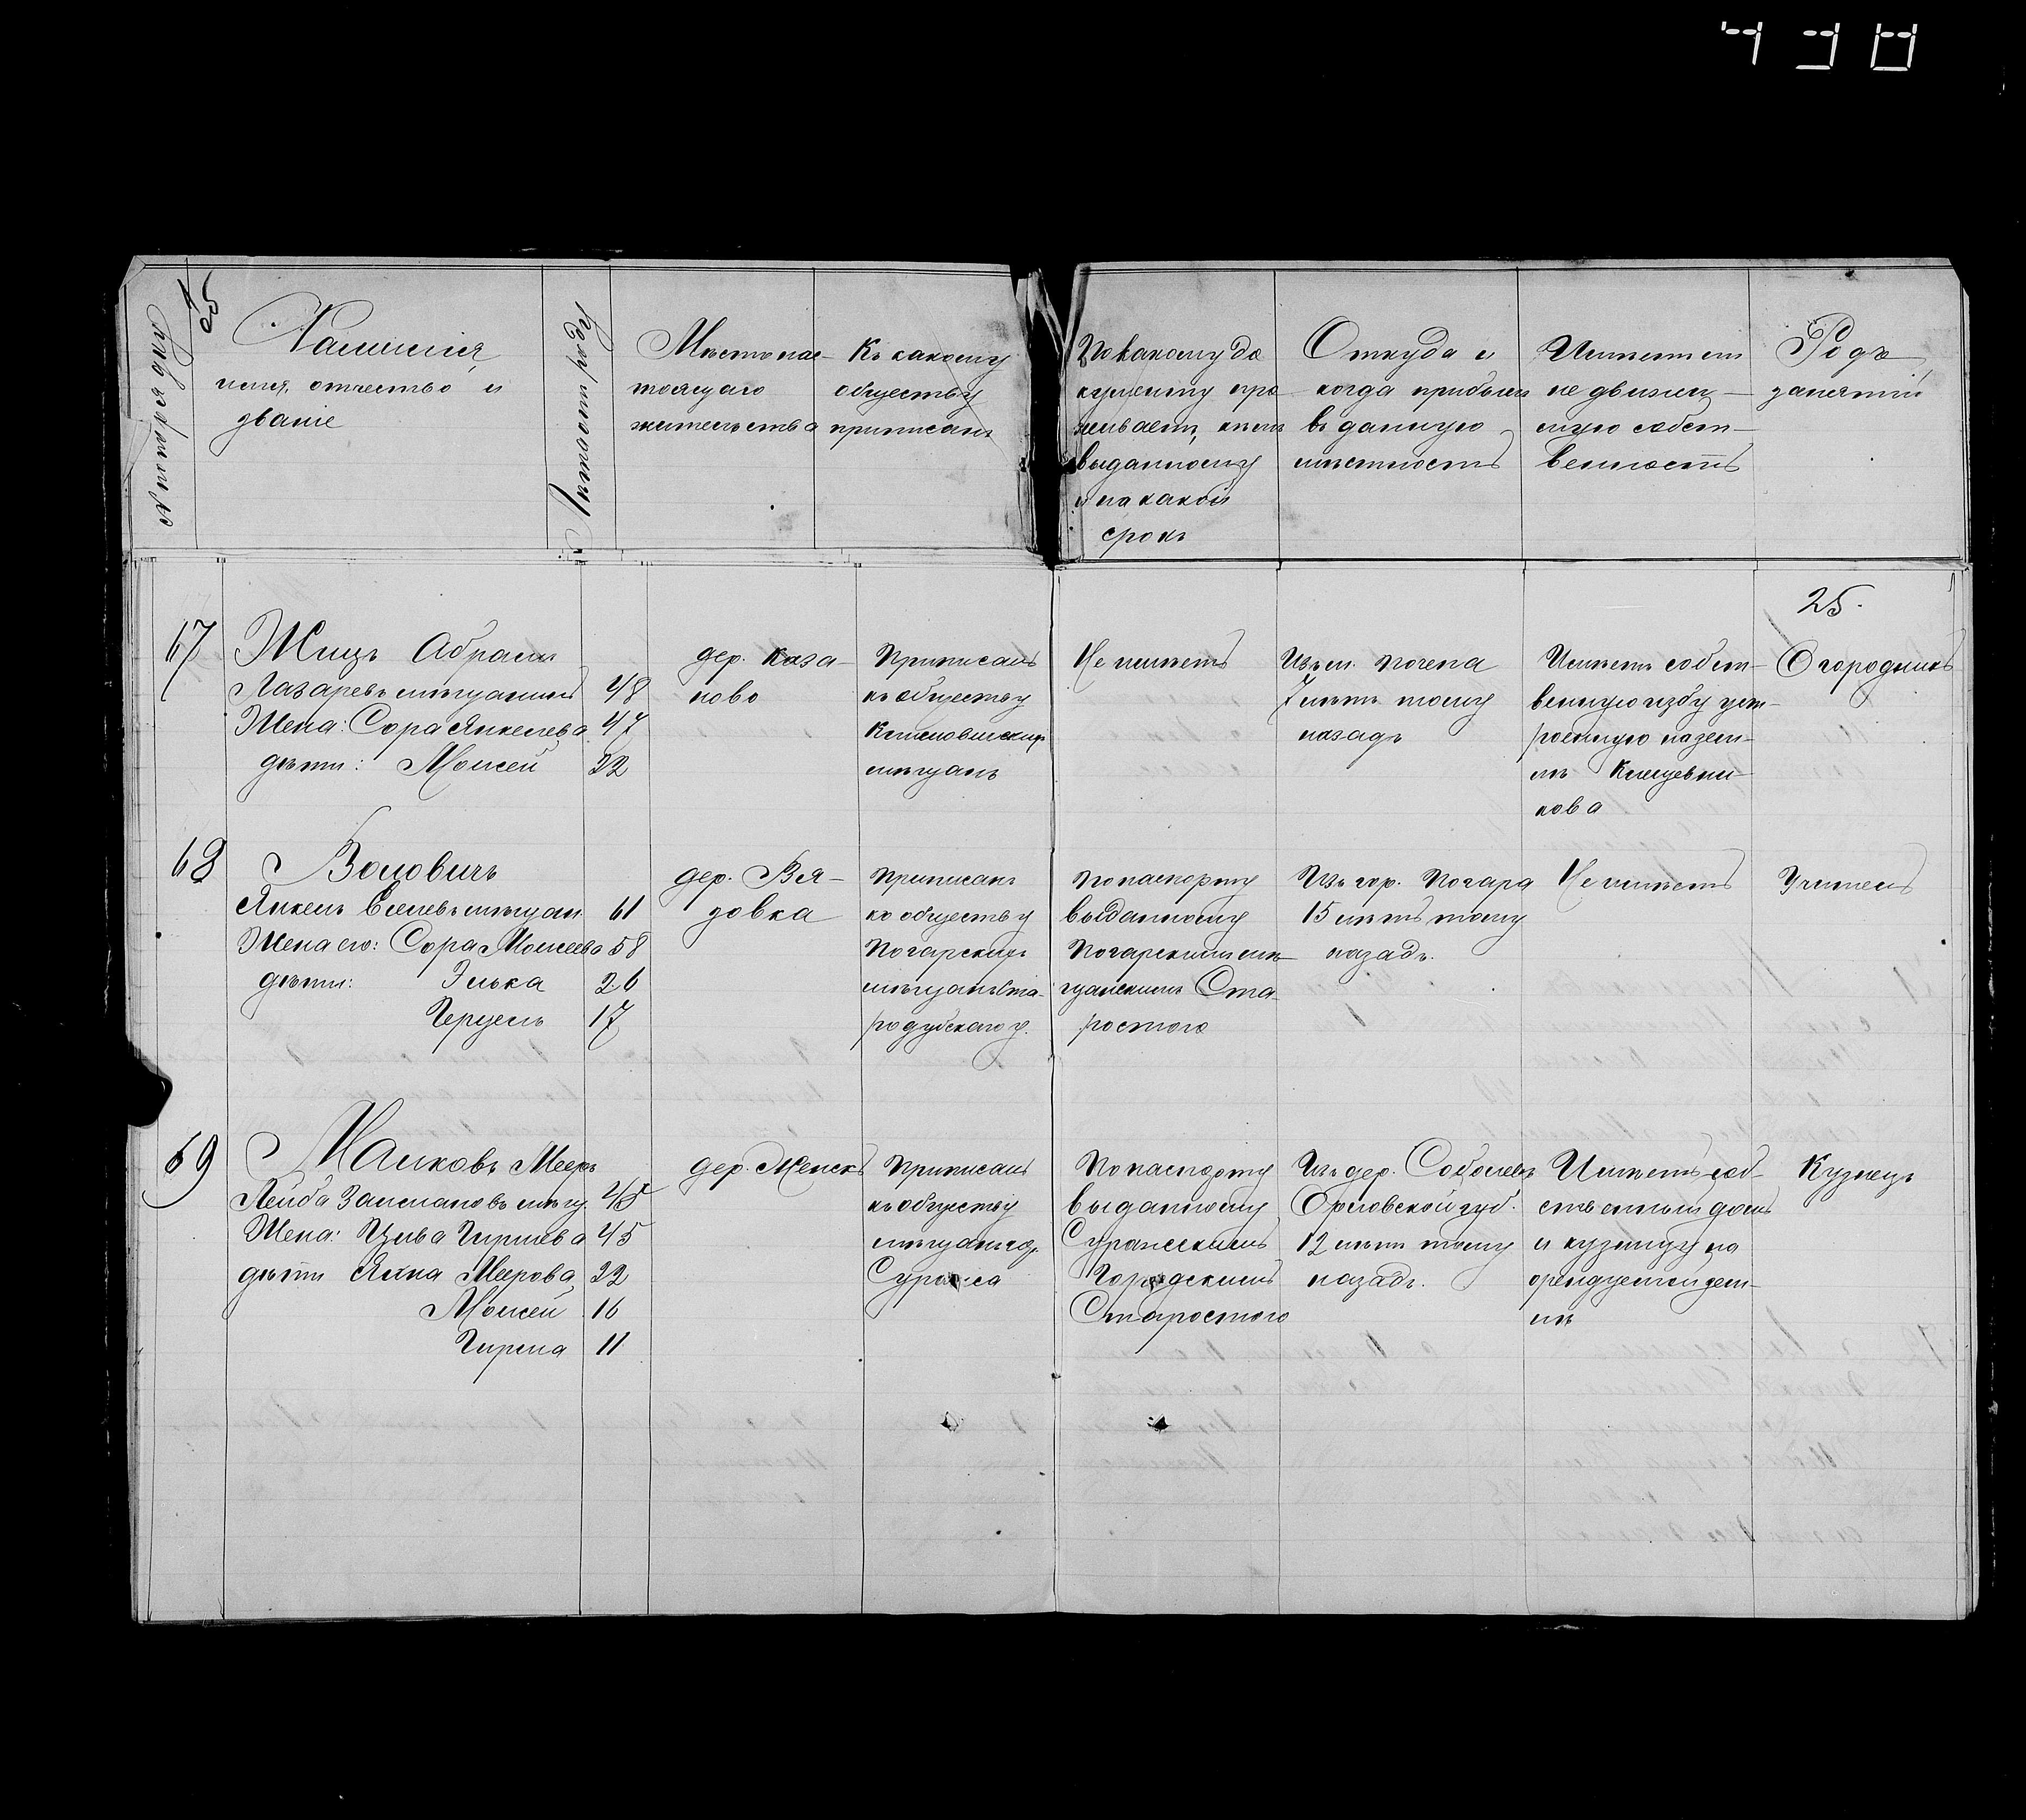 438
№ по порядку
Фамилія,
имя, отчество и
званіе
Лѣта отъ роду
Мѣсто нас-
тоящаго
жительства
Къ какому
обществу
приписанъ
По какому до
кументу про
живаетъ, кѣмъ
выданному
и на какой
срокъ
Откуда и
когда прибылъ
въ данную
мѣстность
Имѣетъ ли
недвижи-
мую собст-
венность
Родъ
занятій
25.
67
Жицъ Абрамъ
Лазаревъ мѣщанинъ 48
Жена: Сора Янкелева 47
дѣти: Моисей 22
дер. Каза-
ново
Приписанъ
къ обществу
Климовискихъ
мѣщанъ
Не имѣетъ
Изъ м. Почепа
7 лѣтъ тому
назадъ
Имѣетъ собст-
венную избу уст-
роенную на зем-
лѣ Клицевни-
кова
Огородникъ
68
Воловичъ
Янкель Евелевъ мѣщан. 61
Жена его: Сора Моисеева 58
дѣти: Элька 26
Герцель 17
дер. Вя-
зовка
Приписанъ
ко обществу
Погарскихъ
мѣщанъ Ста-
родубскаго у.
По паспорту
выданному
Погарскимъ мѣ-
щанскимъ Ста-
ростою
Изъ гор. Погара
15 лѣтъ тому
назадъ.
Не имѣетъ
Учитель
69
Малковъ Меер
Лейба Залмановъ мѣщ. 45
Жена: Цива Гиршева 45
дѣти Яхна Меерова 22
Моисей 16
Гирша 11
дер. Женскъ
Приписанъ
къ обществу
мѣщанъ гор.
Суража
По паспорту
выданному
Суражскимъ
Городскимъ
Старостою
Изъ дер. Соболевъ
Орловской губ.
12 лѣтъ тому
назадъ.
Имѣетъ соб-
ственный домъ
и кузницу на
орендуемой зем-
лѣ
Кузнецъ